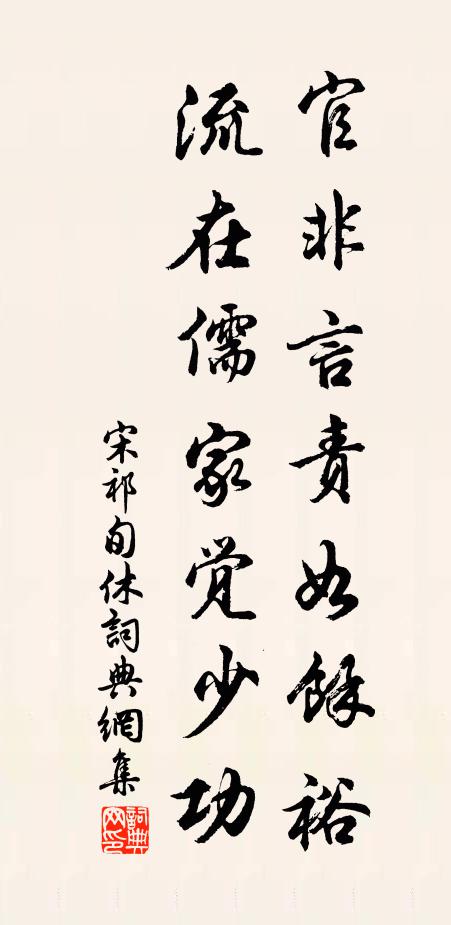 官非言责如餘裕
流在儒家觉少功
宋祁旬休詞典網集
詞典网印